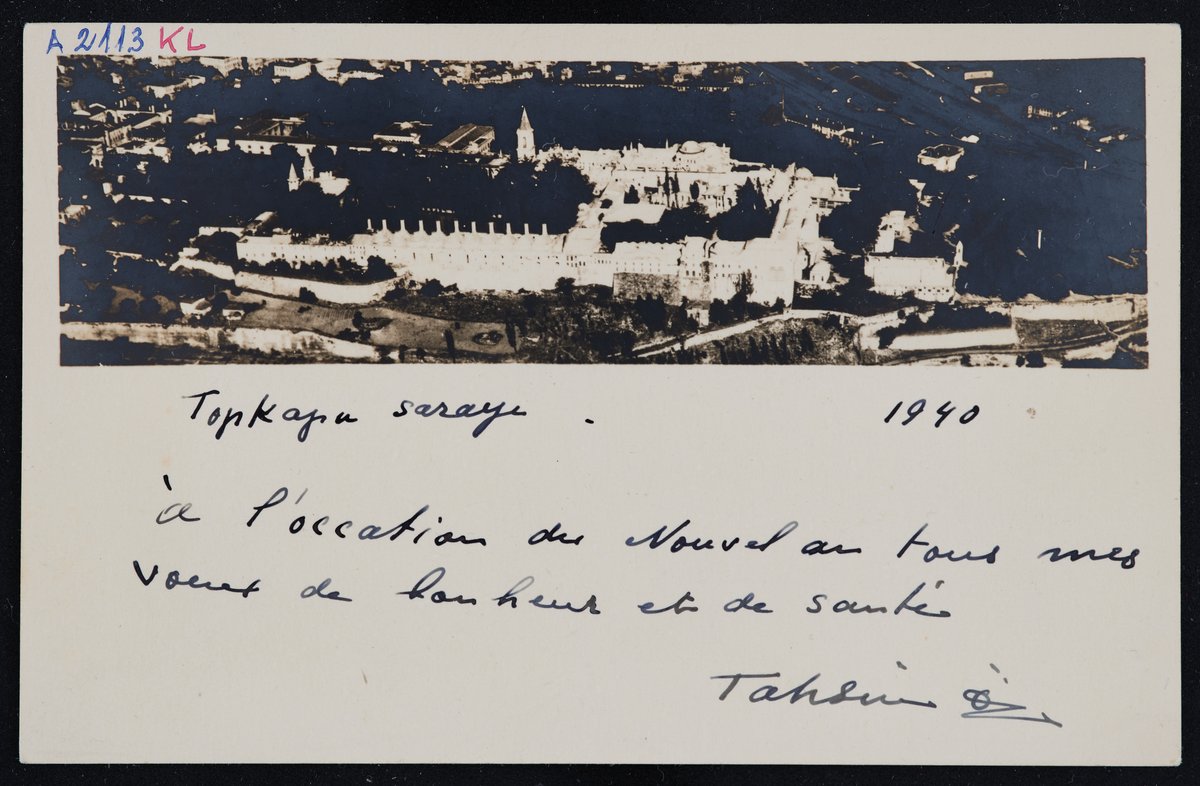 A 2113 KL
Topkapu sarayı. 1940
à l'occation du Nouvel an tous mes
voeux de bonheur et de santé
Tahsin Öz